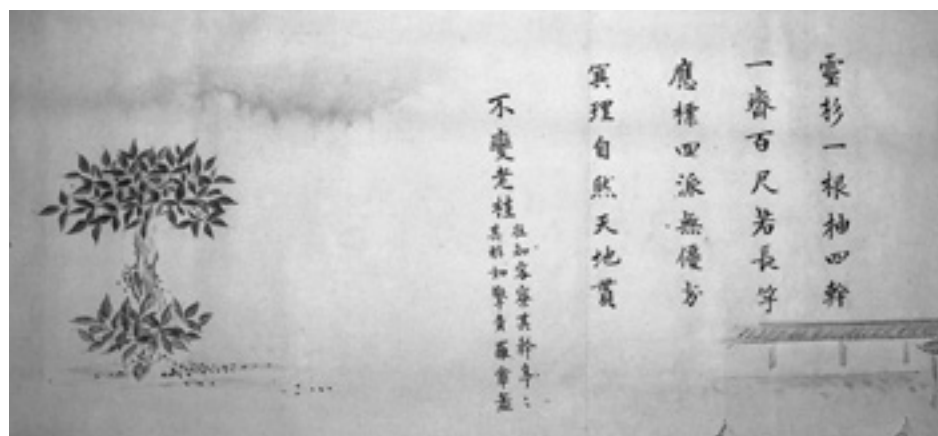 靈杉一根抽四幹
一齊百尺若長竿
應標四派無優劣
冥理自然天地貫
不變老桂
在知客寮其幹亭〻
其形如擎青羅傘蓋